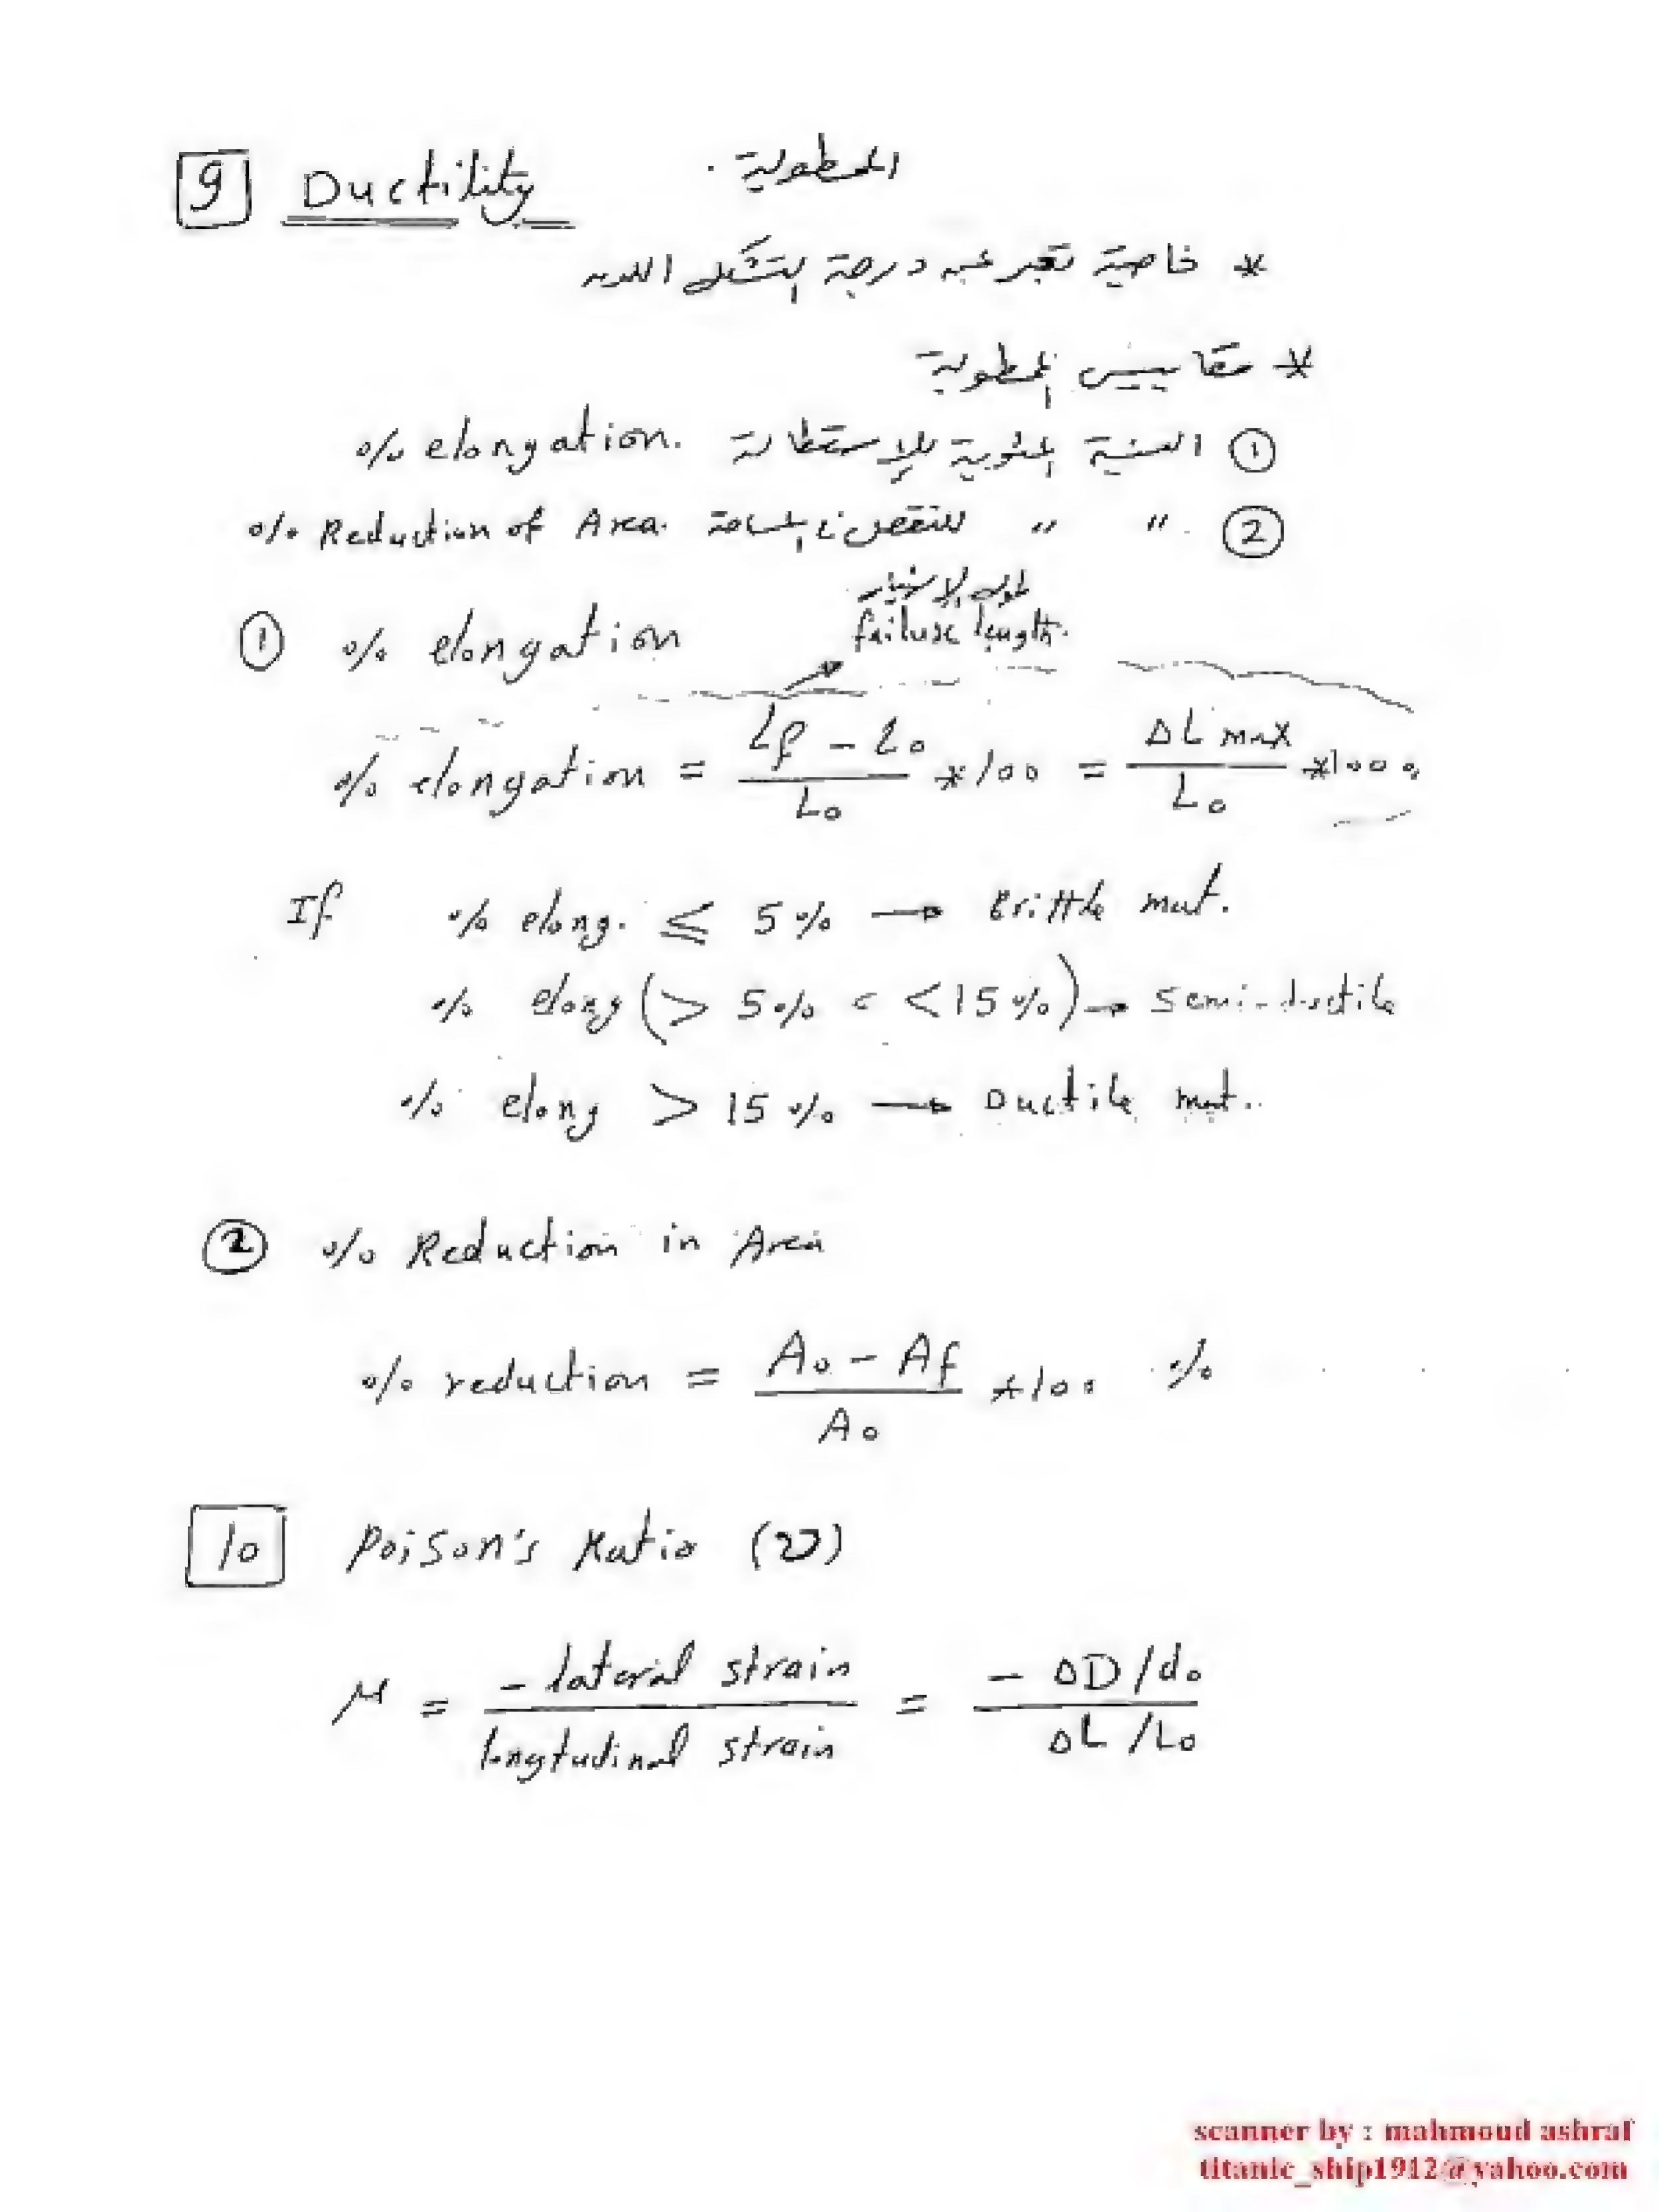 9 Ductility الممطولية .
* خاصية تعبر عن درجة التشكل اللدن
* مقاييس الممطولية
① النسبة المئوية للإستطالة % elongation.
② " " للنقص في المساحة % Reduction of Area.
طول الإنهيار
① % elongation failure length.
% elongation = Lf - Lo / Lo *100 = ΔL max / Lo *100 %
If % elong. ≤ 5 % → Brittle mat.
% elong (> 5 % < <15 %) → semi-ductile
% elong > 15 % → Ductile mat.
② % Reduction in Area
% reduction = Ao - Af / Ao *100 %
10 Poison's Ratio (ν)
μ = - lateral strain / longtudinal strain = - ΔD/do / ΔL/Lo
scanner by : mahmoud ashraf
titanic_ship1912@yahoo.com